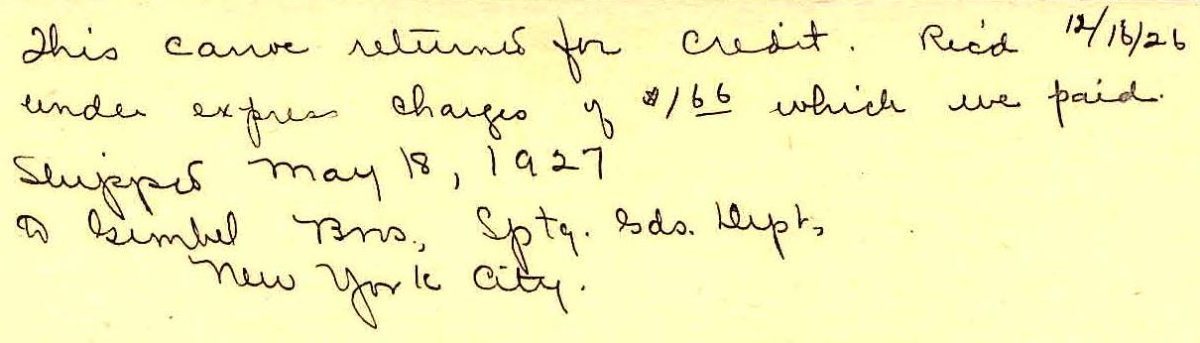 This canoe returned for credit. Rec'd 12/16/26
under express charges of $1 66 which we paid.
Shipped May 18, 1927
to Gimbel Bros., Sptg. Gds. Dept,
New York City.